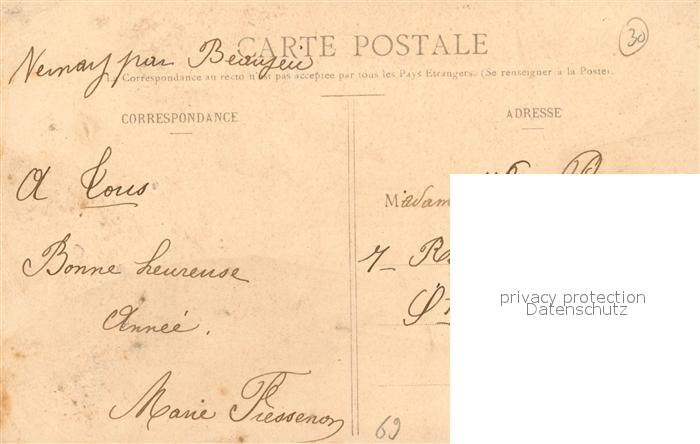 CARTE POSTALE
30
Vernay par Beaujeu
La Correspondance au recto n'est pas acceptée par tous les Pays Etrangers. (Se renseigner à la Poste).
CORRESPONDANCE
A Tous
Bonne heureuse
Année.
Marie
ADRESSE
Madam
7
privacy protection
Datenschutz
69